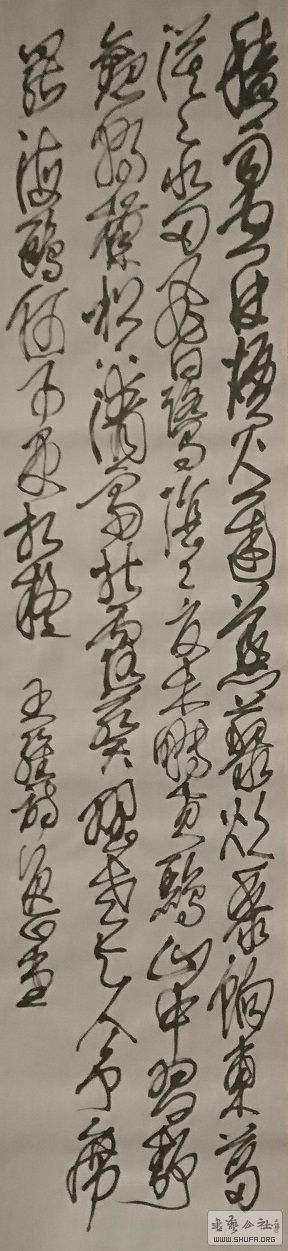 積雨空林煙火遲蒸藜炊黍餉東菑
漠漠水田飛白鷺陰陰夏木囀黃鸝山中習靜
觀朝槿松下清齋折露葵野老與人爭席
罷海鷗何事更相疑 王維詩
求藝公社
WWW.SHUFA.ORG